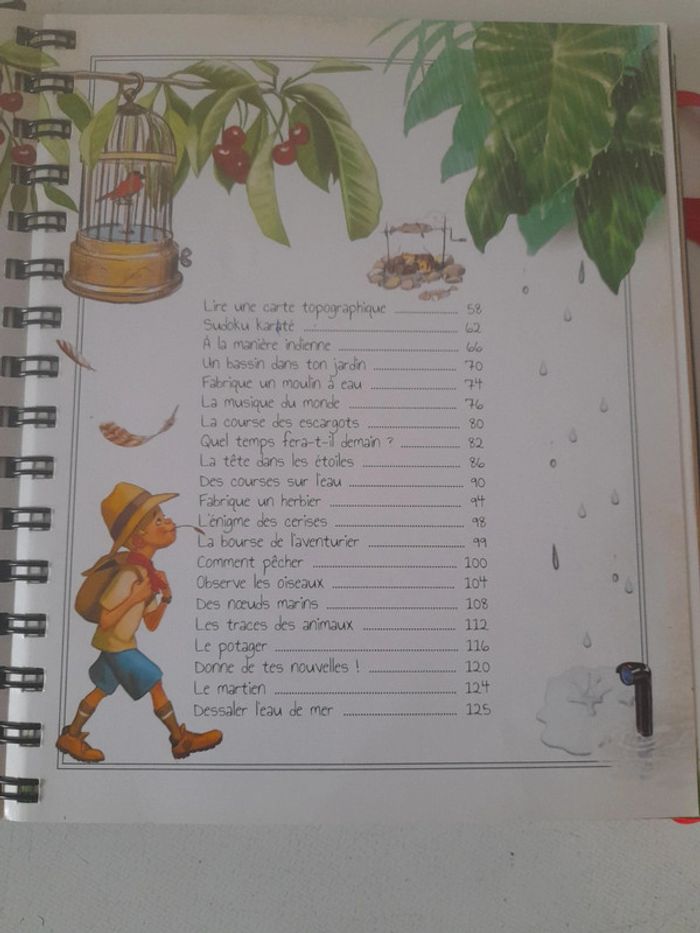 Lire une carte topographique ........ 58
Sudoku karaté ........ 62
À la manière indienne ........ 66
Un bassin dans ton jardin ........ 70
Fabrique un moulin à eau ........ 74
La musique du monde ........ 76
La course des escargots ........ 80
Quel temps fera-t-il demain ? ........ 82
La tête dans les étoiles ........ 86
Des courses sur l'eau ........ 90
Fabrique un herbier ........ 94
L'énigme des cerises ........ 98
La bourse de l'aventurier ........ 99
Comment pêcher ........ 100
Observe les oiseaux ........ 104
Des nœuds marins ........ 108
Les traces des animaux ........ 112
Le potager ........ 116
Donne de tes nouvelles ! ........ 120
Le martien ........ 124
Dessaler l'eau de mer ........ 125